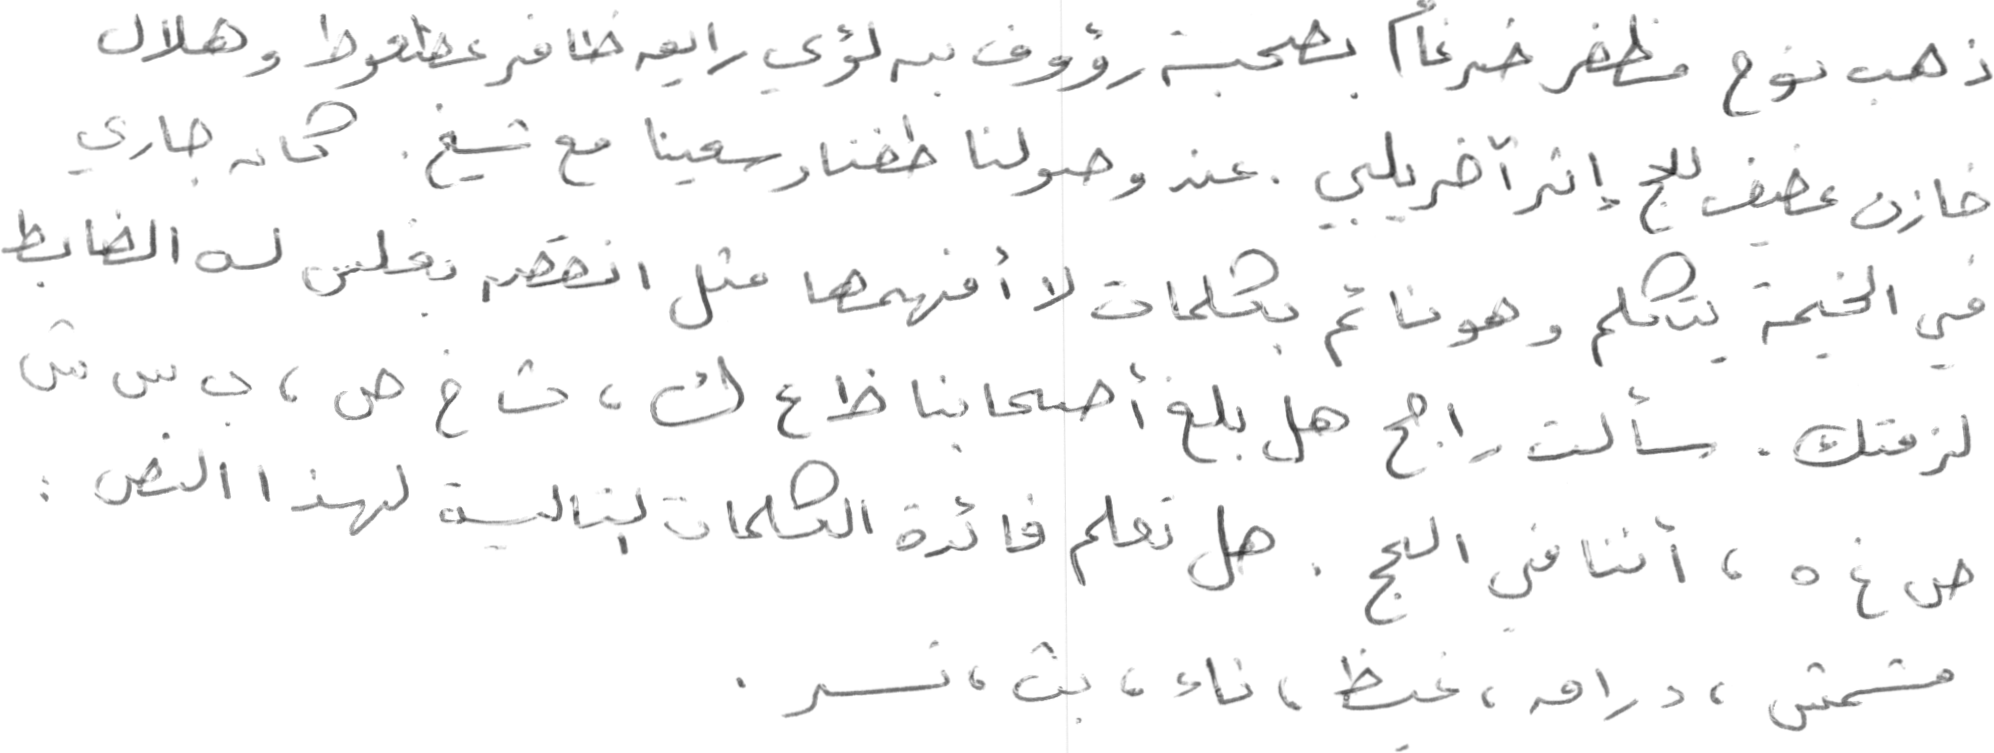 ذهب نوح مظفر ضرغام بصحبة رؤوف بن لؤي رايق ظافر عطعوط وهلال
خازن عفيف للحج إثر آخر يلبي . عند وصولنا طفنا وسعينا مع شيخ . كان جاري
في الخيمة يتكلم وهو نائم بكلمات لا أفهمها مثل انقض بغلس له الضابط
لزمتك . سألت راجح هل بلغ أصحابنا ظ ع ك ، ث خ ص ، ب س ش
ص غ ه ، أننا في الحج . هل تعلم فائدة الكلمات التالية لهذا النص :
مشمش ، دراق ، غيظ ، ناء ، بث ، نسر .